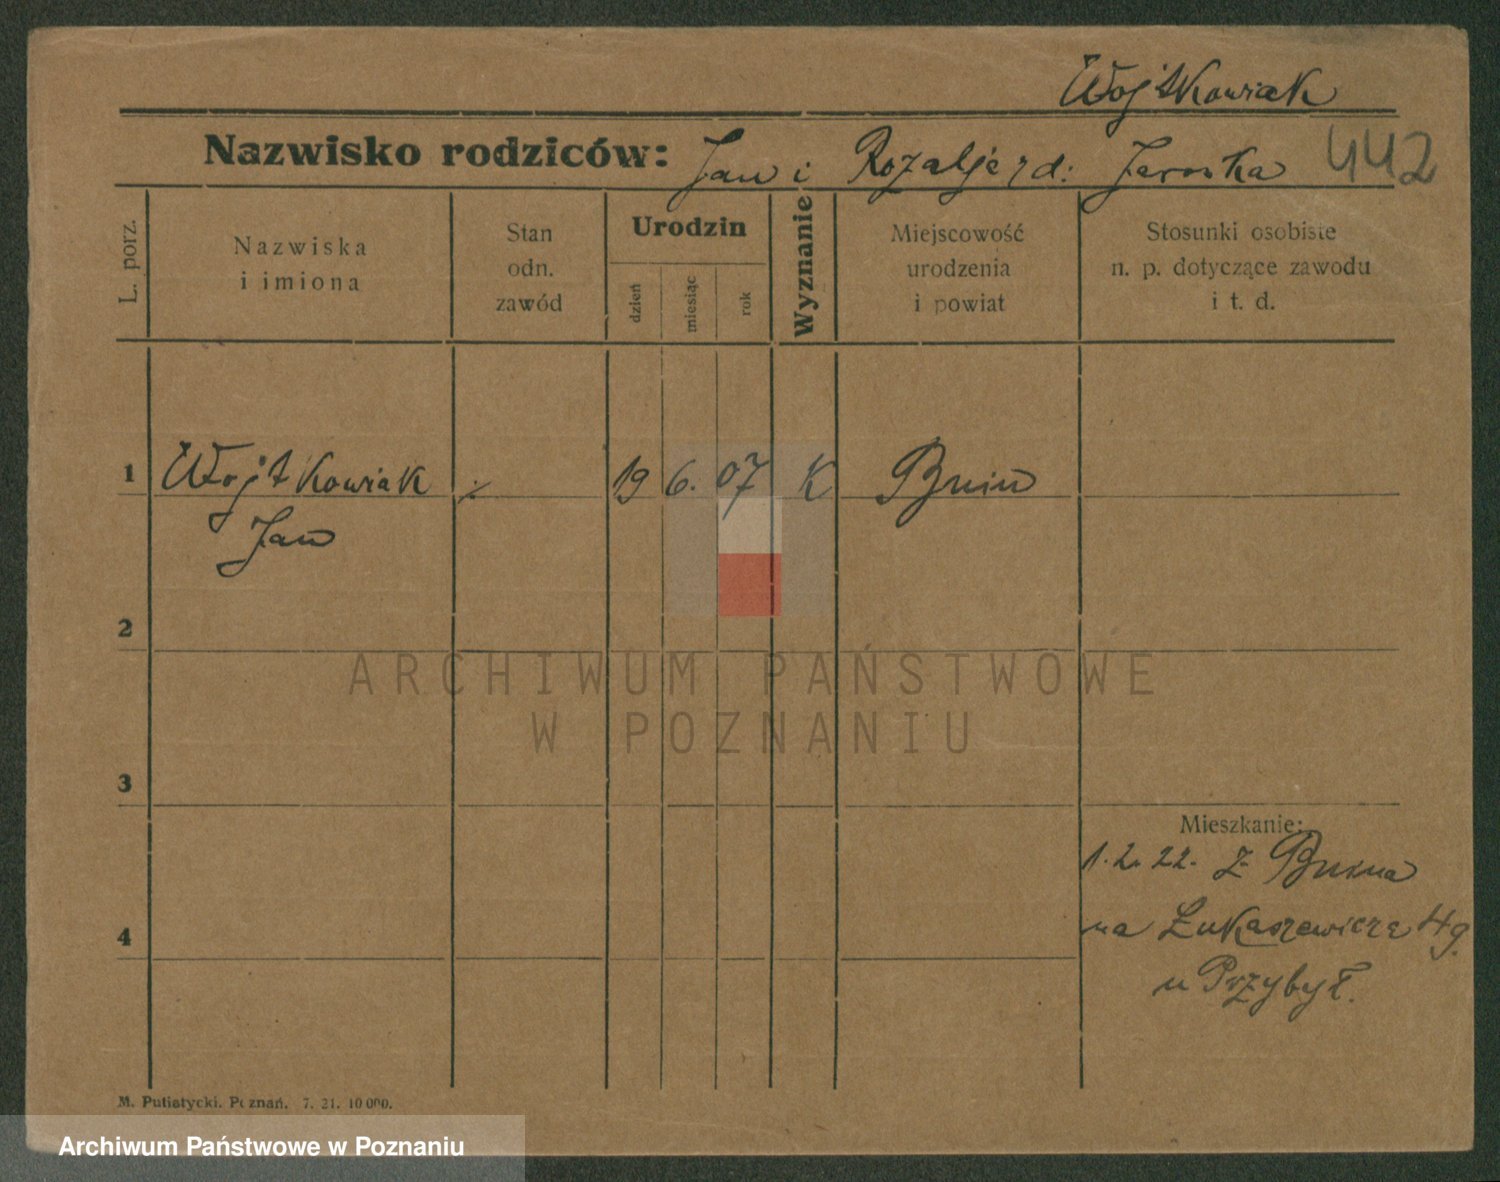 Wojtkowiak
Nazwisko rodziców: Jan i Rozalje rd: 442
L. porz.
Nazwiska
i imiona
Stan
odn.
zawód
Urodzin
dzień
miesiąc
rok
Wyznanie
Miejscowość
urodzenia
i powiat
Stosunki osobiste
n. p. dotyczące zawodu
i t. d.
1 Wojtkowiak 19 6. 07 K Bnin
Jan
2
ARCHIWUM PAŃSTWOWE
W POZNANIU
3
Mieszkanie:
1. 2. 22. z Bnina
na Łukaszewicza
4
u Przybył.
M. Putiatycki. Poznań. 7. 21. 10 000.
Archiwum Państwowe w Poznaniu